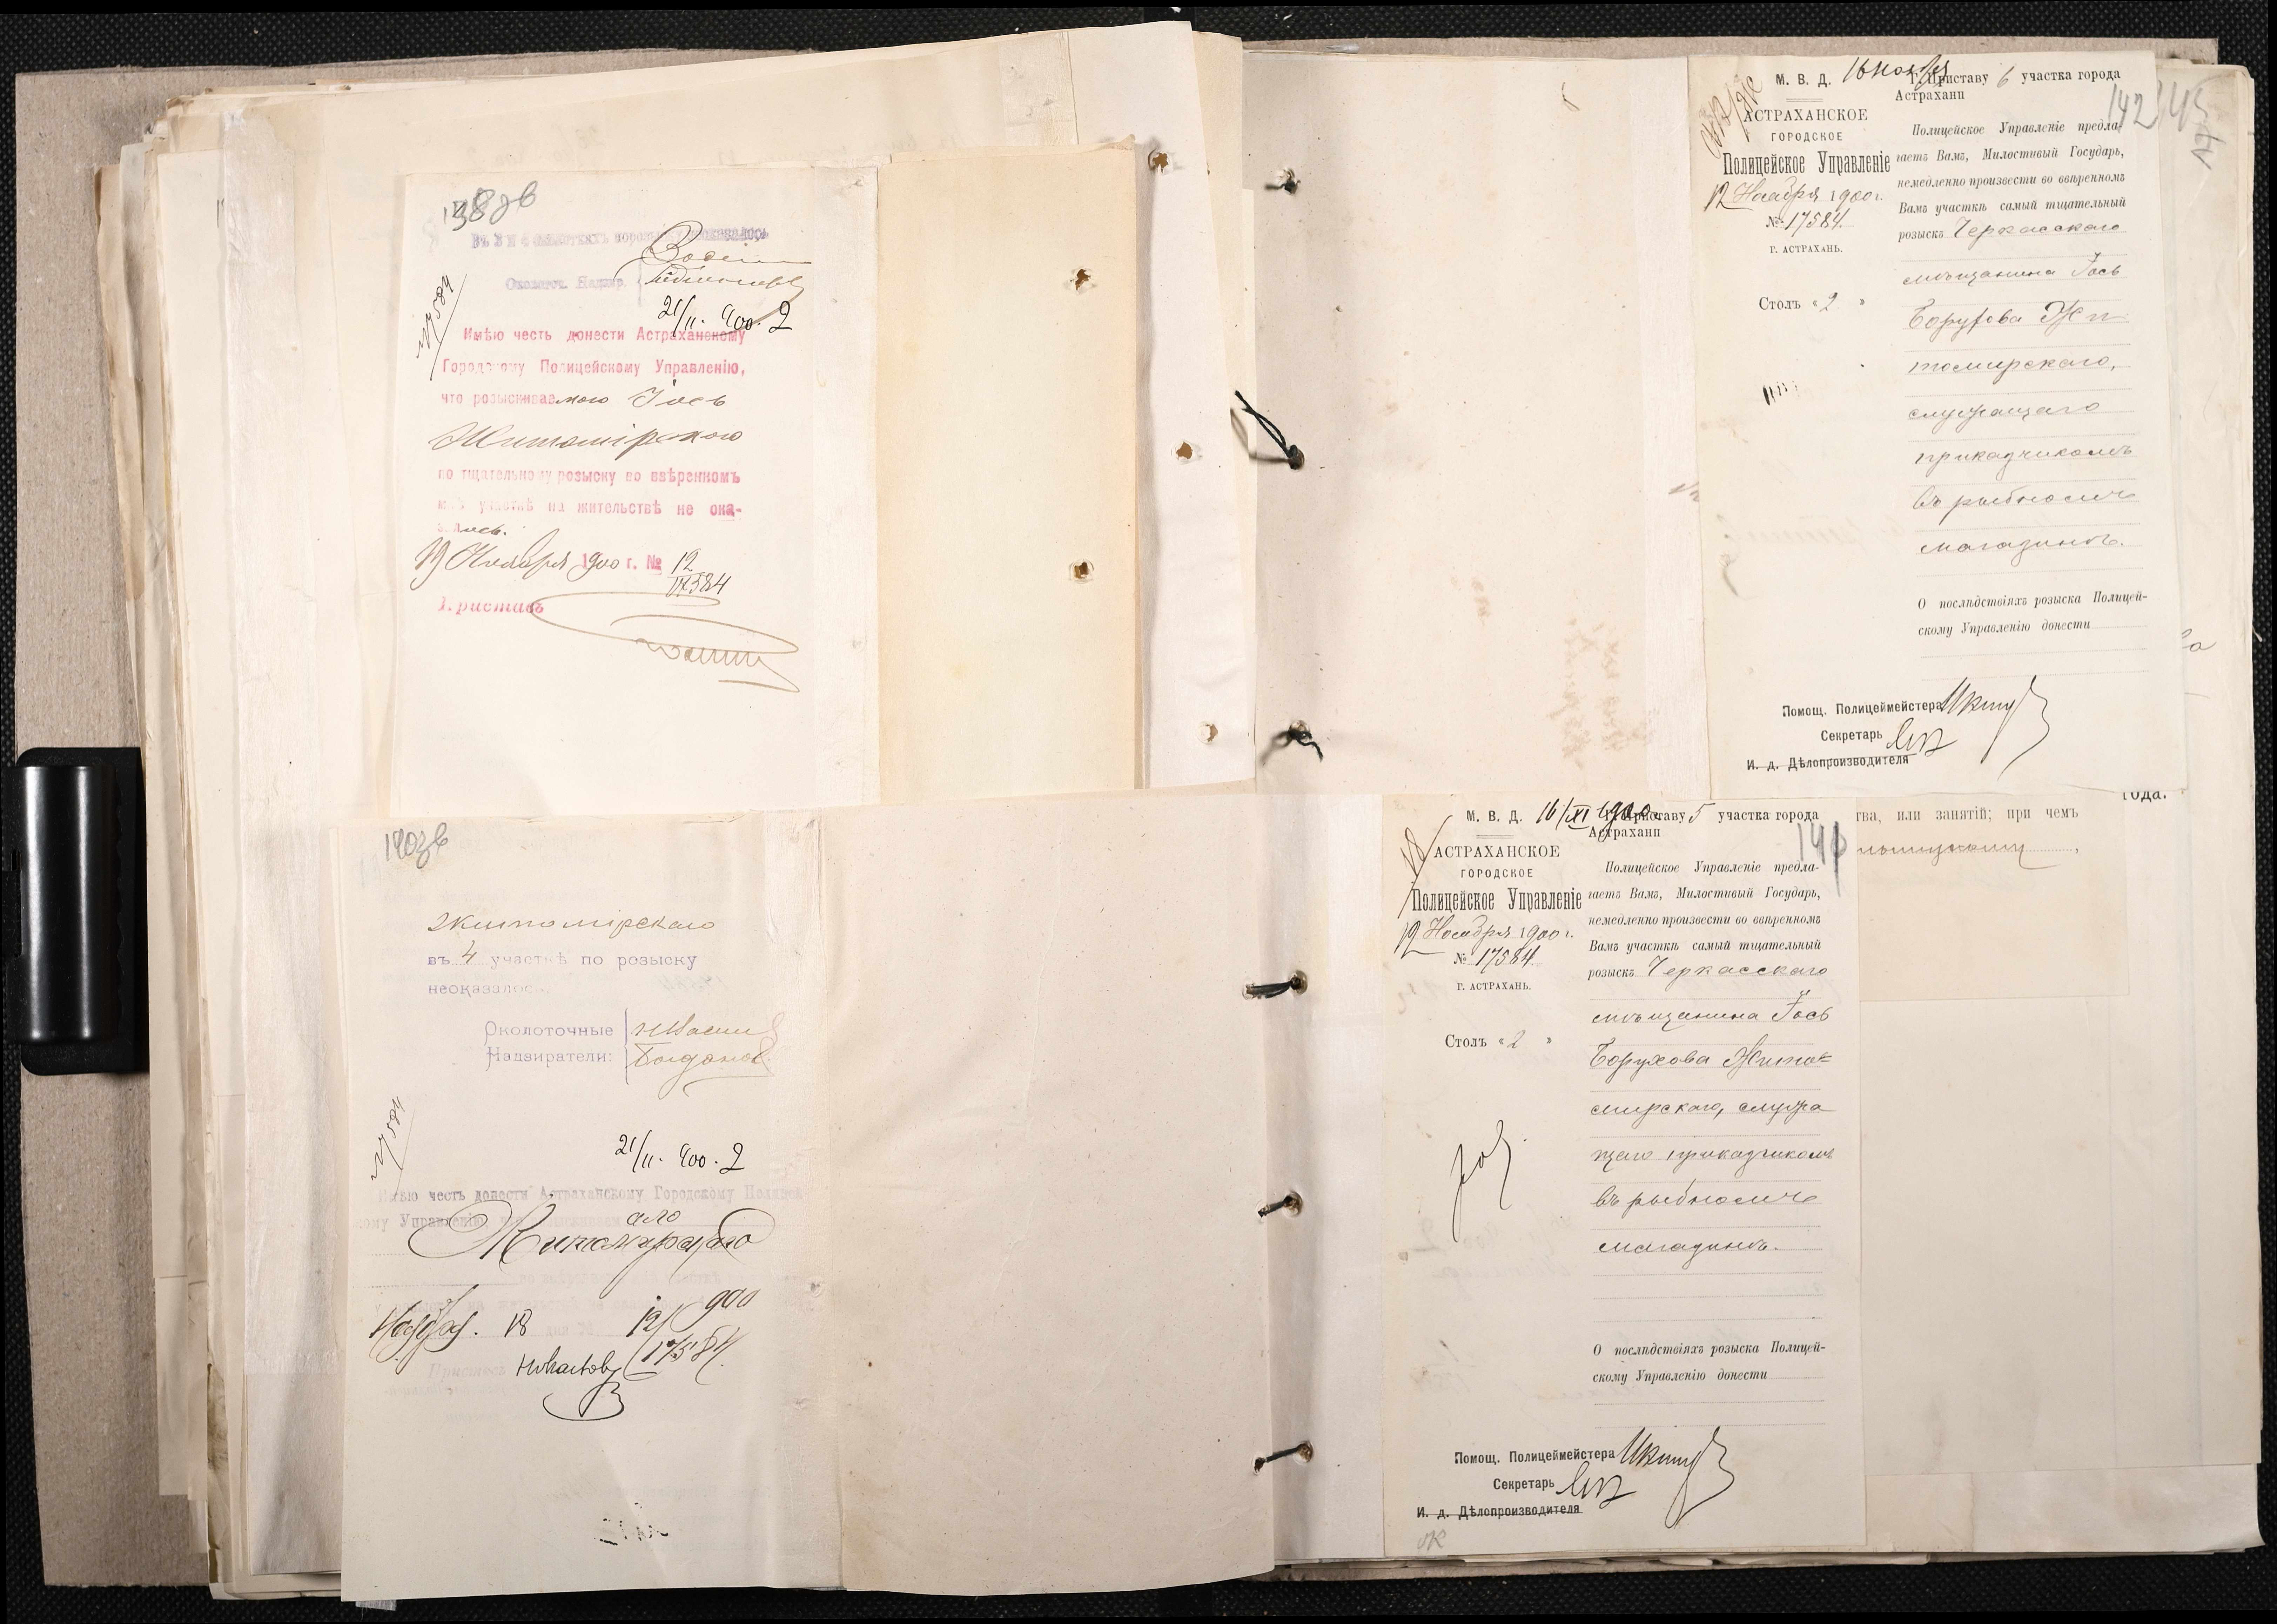 138 об
Въ 3 и 4 околоткахъ города не оказалось
Околоточ. Надзир.
№ 17584
21/11. 900. 2
Имѣю честь донести Астраханскому
Городскому Полицейскому Управленію,
что розыскиваемаго Іось
Житомірскаго
по тщательному розыску во ввѣренномъ
мнѣ участкѣ на жительствѣ не ока-
залось.
19 Ноября 1900 г. № 12
17584
Приставъ
140 об
Житомірскаго
въ 4 участкѣ по розыску
неоказалось.
Околоточные
Надзиратели: Богданов
№ 17584
21/11. 900. 2
Имѣю честь донести Астраханскому Городскому Полицей
скому Управленію
Житомирскаго
Ноября 18 12/17584 900
Приставъ
М. В. Д.
АСТРАХАНСКОЕ
ГОРОДСКОЕ
Полицейское Управленіе
12 Ноября 1900 г.
№ 17584.
Г. АСТРАХАНЬ.
Столъ „2"
16 Ноября
Г. Приставу 6 участка города
Астрахани
142
145
Полицейское Управленіе предла-
гаетъ Вамъ, Милостивый Государь,
немедленно произвести во ввѣренномъ
Вамъ участкѣ самый тщательный
розыскъ Черкасскаго
мѣщанина Іось
Борухова Жи
томирскаго,
служащаго
прикащикомъ
въ рыбномъ
магазинѣ.
О послѣдствіяхъ розыска Полицей-
скому Управленію донести
Помощ. Полицеймейстера
Секретарь
И. д. Дѣлопроизводителя
года.
тва, или занятій; при чемъ
М. В. Д.
АСТРАХАНСКОЕ
ГОРОДСКОЕ
Полицейское Управленіе
12 Ноября 1900 г.
№ 17584
Г. АСТРАХАНЬ.
Столъ „2"
16/XI 1900
Г. Приставу 5 участка города
Астрахани
Полицейское Управленіе предла-
гаетъ Вамъ, Милостивый Государь,
немедленно произвести во ввѣренномъ
Вамъ участкѣ самый тщательный
розыскъ Черкасскаго
мѣщанина Іось
Борухова Жито=
мирскаго, служа
щаго прикащикомъ
въ рыбномъ
магазинѣ.
О послѣдствіяхъ розыска Полицей-
скому Управленію донести
Помощ. Полицеймейстера
Секретарь
И. д. Дѣлопроизводителя